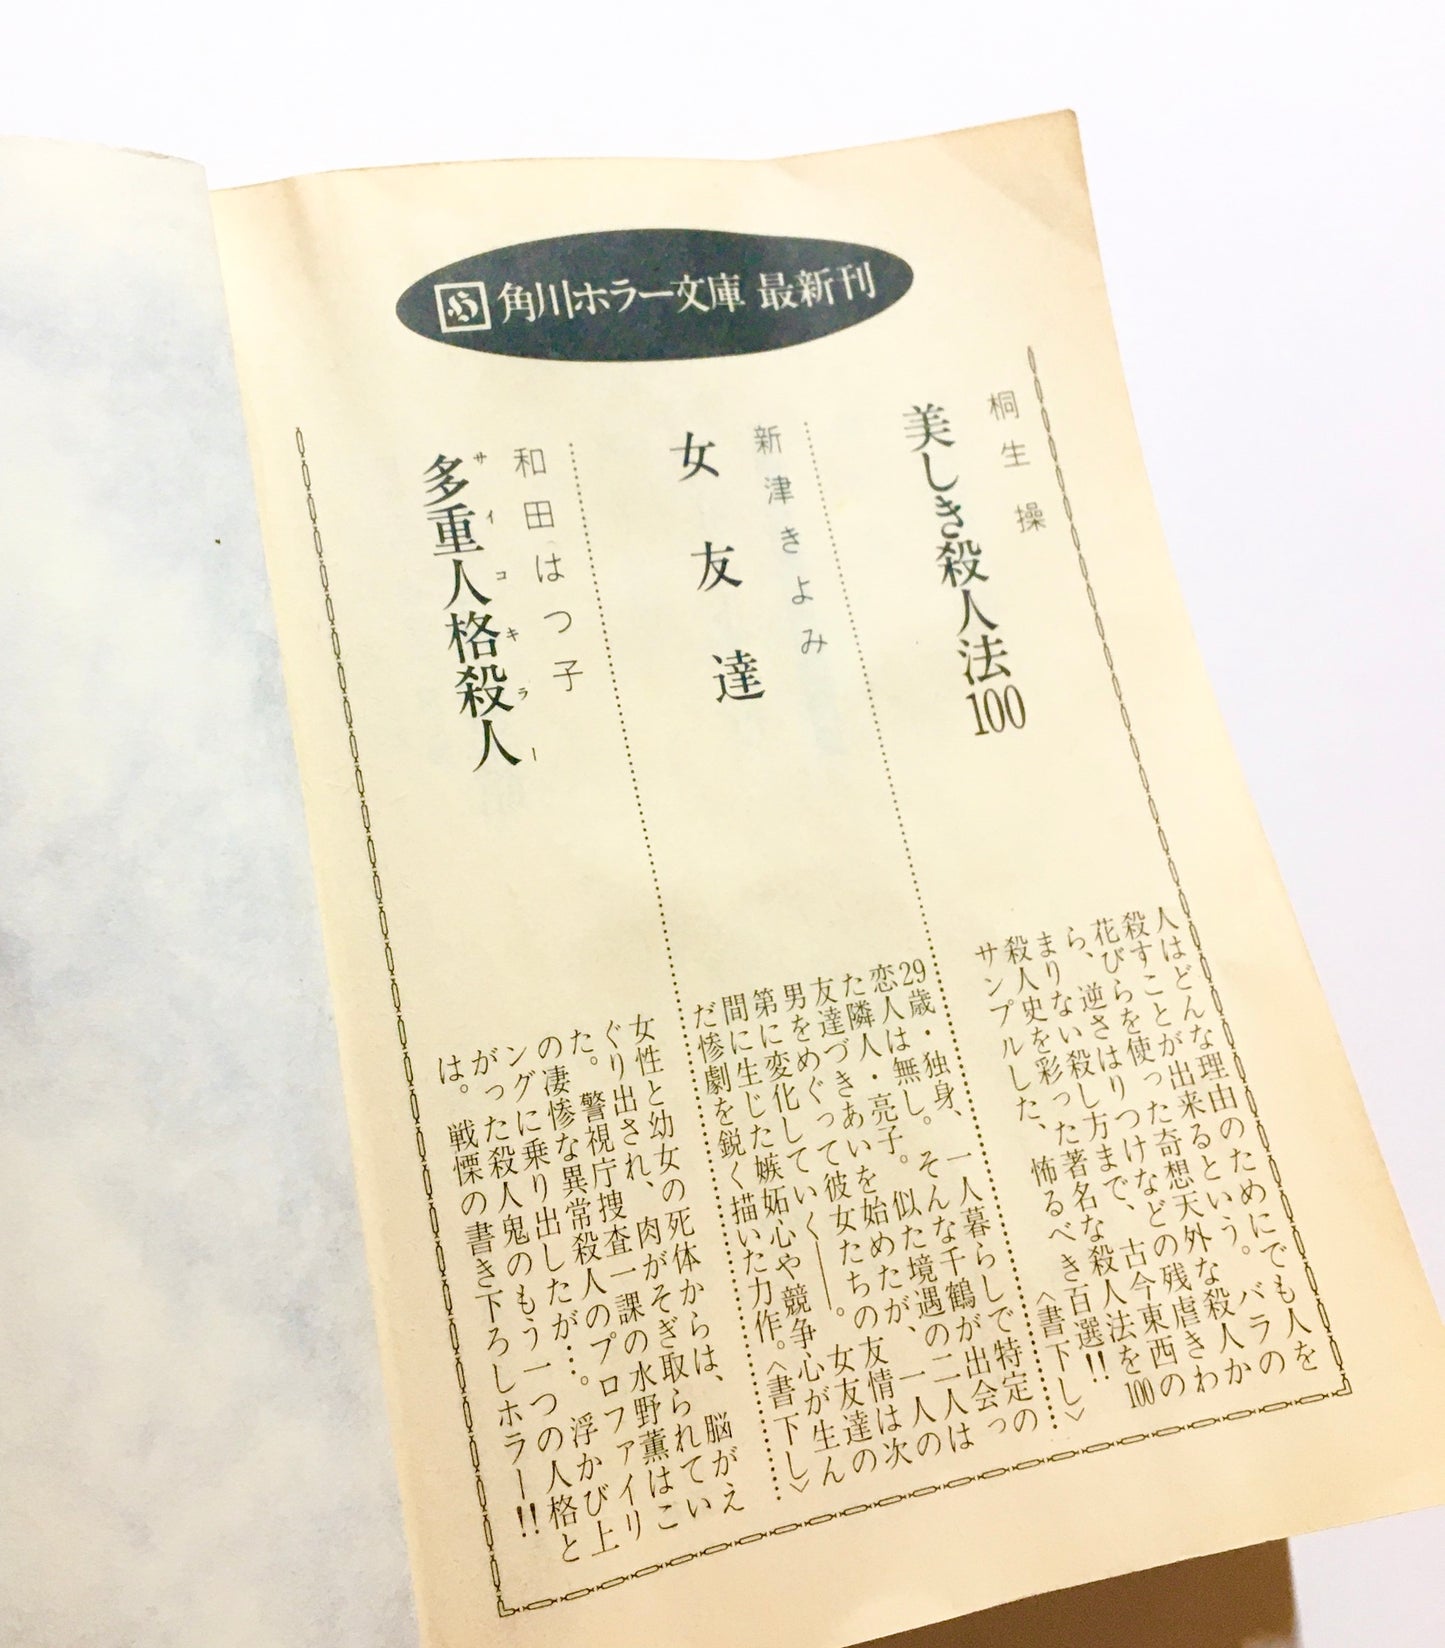 H 角川ホラー文庫 最新刊
桐生操
美しき殺人法100
人はどんな理由のためにでも人を
殺すことが出来るという。バラの
花びらを使った奇想天外な殺人か
ら、逆さはりつけなどの残虐きわ
まりない殺し方まで、古今東西の
殺人史を彩った著名な殺人法を100
サンプルした、怖るべき百選!!
〈書下し〉
新津きよみ
女友達
29歳・独身、一人暮らしで特定の
恋人は無し。そんな千鶴が出会っ
た隣人・亮子。似た境遇の二人は
友達づきあいを始めたが、一人の
男をめぐって彼女たちの友情は次
第に変化していく――。女友達の
間に生じた嫉妬心や競争心が生ん
だ惨劇を鋭く描いた力作。〈書下し〉
和田はつ子
サイコキラー
多重人格殺人
女性と幼女の死体からは、脳がえ
ぐり出され、肉がそぎ取られてい
た。警視庁捜査一課の水野薫はこ
の凄惨な異常殺人のプロファイリ
ングに乗り出したが…。浮かび上
がった殺人鬼のもう一つの人格と
は。戦慄の書き下ろしホラー!!